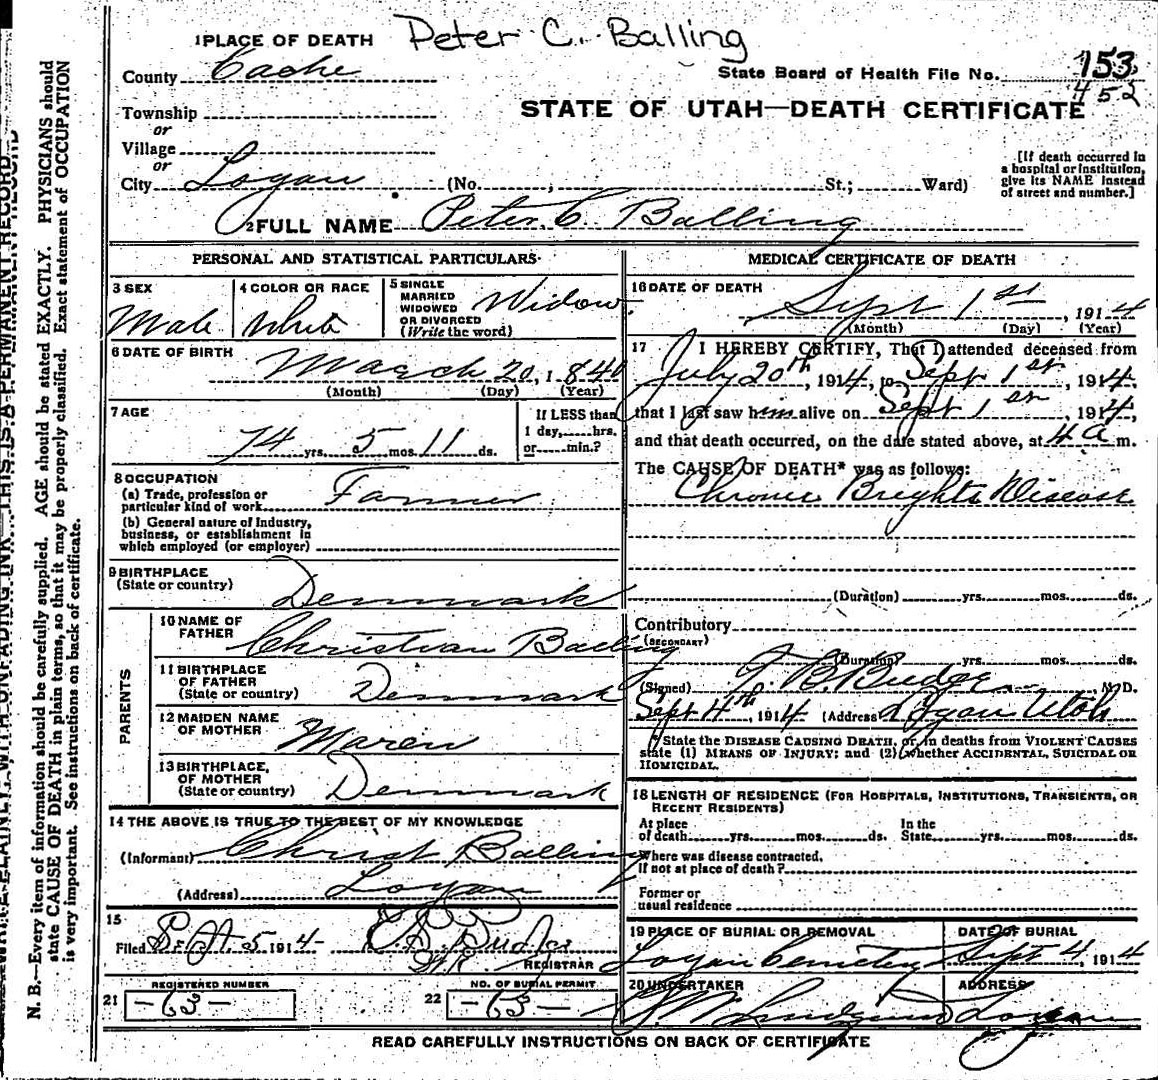 Peter C. Balling
1 PLACE OF DEATH
County Cache
State Board of Health File No. 153
452
STATE OF UTAH—DEATH CERTIFICATE
Township
or
Village
or
City Logan (No. , St.; Ward)
[If death occurred in a hospital or institution, give its NAME instead of street and number.]
2 FULL NAME Peter C. Balling
PERSONAL AND STATISTICAL PARTICULARS
3 SEX
Male
4 COLOR OR RACE
White
5 SINGLE MARRIED WIDOWED OR DIVORCED (Write the word)
Widow
6 DATE OF BIRTH
March 20, 1840
(Month) (Day) (Year)
7 AGE
74 yrs. 5 mos. 11 ds.
If LESS than 1 day, hrs. or min.?
8 OCCUPATION
(a) Trade, profession or particular kind of work Farmer
(b) General nature of Industry, business, or establishment in which employed (or employer)
9 BIRTHPLACE
(State or country) Denmark
PARENTS
10 NAME OF FATHER Christian Balling
11 BIRTHPLACE OF FATHER (State or country) Denmark
12 MAIDEN NAME OF MOTHER Maren
13 BIRTHPLACE, OF MOTHER (State or country) Denmark
14 THE ABOVE IS TRUE TO THE BEST OF MY KNOWLEDGE
(Informant) Christ Balling
(Address) Logan
15
Filed Sept. 5 1914
REGISTRAR
REGISTERED NUMBER
21 -63-
NO. OF BURIAL PERMIT
22 -63-
MEDICAL CERTIFICATE OF DEATH
16 DATE OF DEATH
Sept 1st, 1914
(Month) (Day) (Year)
17 I HEREBY CERTIFY, That I attended deceased from
July 20th, 1914, to Sept 1st, 1914,
that I last saw him alive on Sept 1st, 1914,
and that death occurred, on the date stated above, at 4 a m.
The CAUSE OF DEATH* was as follows:
Chronic Brights Disease
(Duration) yrs. mos. ds.
Contributory
(SECONDARY)
(Duration) yrs. mos. ds.
(Signed) B. Budge M.D.
Sept 4th, 1914 (Address) Logan Utah
* State the DISEASE CAUSING DEATH, or, in deaths from VIOLENT CAUSES
state (1) MEANS OF INJURY; and (2) whether ACCIDENTAL, SUICIDAL OR
HOMICIDAL.
18 LENGTH OF RESIDENCE (FOR HOSPITALS, INSTITUTIONS, TRANSIENTS, OR
RECENT RESIDENTS)
At place of death yrs. mos. ds. In the State yrs. mos. ds.
Where was disease contracted, if not at place of death?
Former or usual residence
19 PLACE OF BURIAL OR REMOVAL
Logan Cemetery
DATE OF BURIAL
Sept 4, 1914
20 UNDERTAKER
ADDRESS
Logan
READ CAREFULLY INSTRUCTIONS ON BACK OF CERTIFICATE
WRITE PLAINLY WITH UNFADING INK—THIS IS A PERMANENT RECORD
N. B.—Every item of information should be carefully supplied. AGE should be stated EXACTLY. PHYSICIANS should
state CAUSE OF DEATH in plain terms, so that it may be properly classified. Exact statement of OCCUPATION
is very important. See instructions on back of certificate.